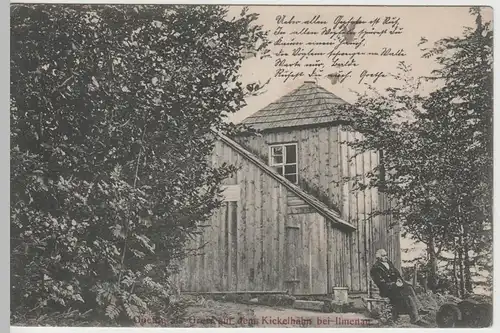 Ueber allen Gipfeln ist Ruh,
In allen Wipfeln spürest Du
Kaum einen Hauch;
die Vöglein schweigen im Walde
Warte nur, balde
Ruhest du auch. Goethe
auf dem Kickelhahn bei Ilmenau